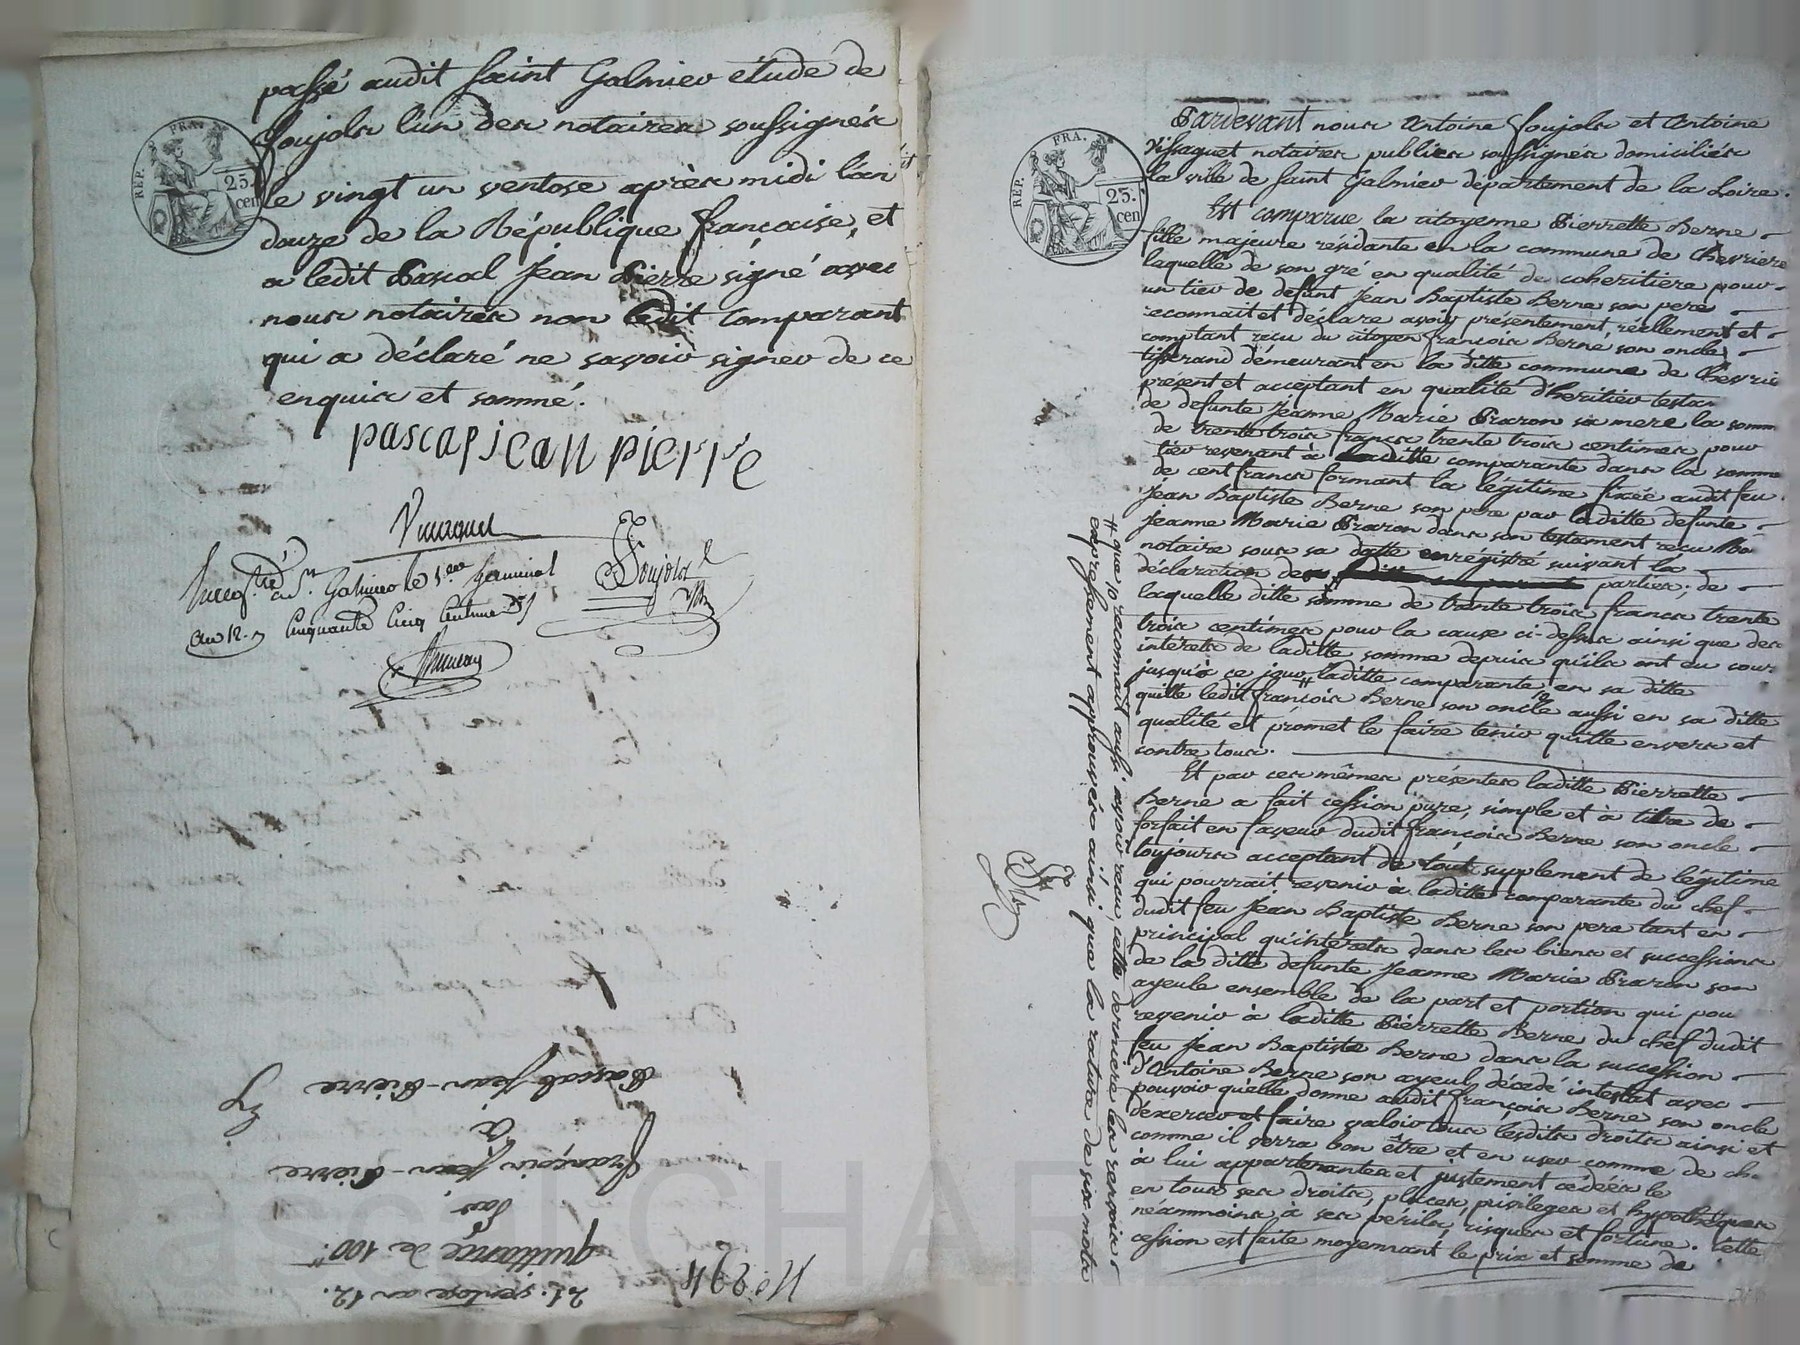 passé audit saint Galmier étude de
Soujols l'un des notaires soussignés
le vingt un ventose après midi l'an
douze de la République française, et
a ledit Pascal Jean Pierre signé avec
nous notaires non ledit comparant
qui a déclaré ne savoir signer de ce
enquis et sommé.
pascal jean pierre
an 12. cinquante cinq centimes
21. ventose an 12.
quittance de 100
par
François Jean-Pierre
à
Pascal Jean-Pierre
No. 294
REP. FRA.
25.
cen
REP. FRA.
25.
cen
Pardevant nous Antoine Soujols et Antoine
Vissaguet notaires publics soussignés domiciliés
la ville de saint Galmier département de la Loire.
Est comparue la citoyenne Pierrette Berne
fille majeure résidante en la commune de Chevriere
laquelle de son gré en qualité de coheritiere pour
un tier de defunt Jean Baptiste Berne son pere
reconnait et déclare avoir présentement, réellement et
comptant recu du citoyen françois Berne son oncle
tisserand démeurant en la ditte commune de Chevrie
présent et acceptant en qualité d'heritier testa
de defunte Jeanne Marie Prazon sa mere la somm
de trente trois francs trente trois centimes pour
tier revenant à laditte comparante dans la somme
de cent francs formant la légitime fixée audit feu
Jean Baptiste Berne son pere par laditte defunte
Jeanne Marie Prazon dans son testament recu
notaire sous sa datte enrégistré suivant la
déclaration des parties; de
laquelle ditte somme de trente trois francs trente
trois centimes pour la cause ci-dessus ainsi que des
intérêts de laditte somme depuis qu'ils ont eu cour
jusqu'à ce jour laditte comparante en sa ditte
quitte ledit françois Berne son oncle aussi en sa ditte
qualité et promet le faire tenir quitte envers et
contre tous.
Et par ces mêmes présentes laditte Pierrette
Berne a fait cession pure, simple et à titre de
forfait en faveur dudit françois Berne son oncle
toujours acceptant de tout supplement de légitime
qui pourrait revenir à laditte comparante du chef
dudit feu Jean Baptiste Berne son pere tant en
principal qu'intérêts dans les biens et successions
de la ditte defunte Jeanne Marie Prazon son
ayeule ensemble de la part et portion qui pou
revenir à laditte Pierrette Berne du chef dudit
feu Jean Baptiste Berne dans la succession
d'Antoine Berne son ayeul décédé intestat avec
pouvoir qu'elle donne audit françois Berne son oncle
d'exercer et faire valoir tous lesdits droits ainsi et
comme il verra bon être et en user comme de ch.
à lui appartenantes et justement cédées le
en tous ses droits, places, privileges et hypothèques
néammoins à ses périls, risques et fortune. Cette
cession est faite moyennant le prix et somme de
# que reconnait aussi avoir recu cette derniere les renvois
expressement approuvés ainsi que la rature de six mots